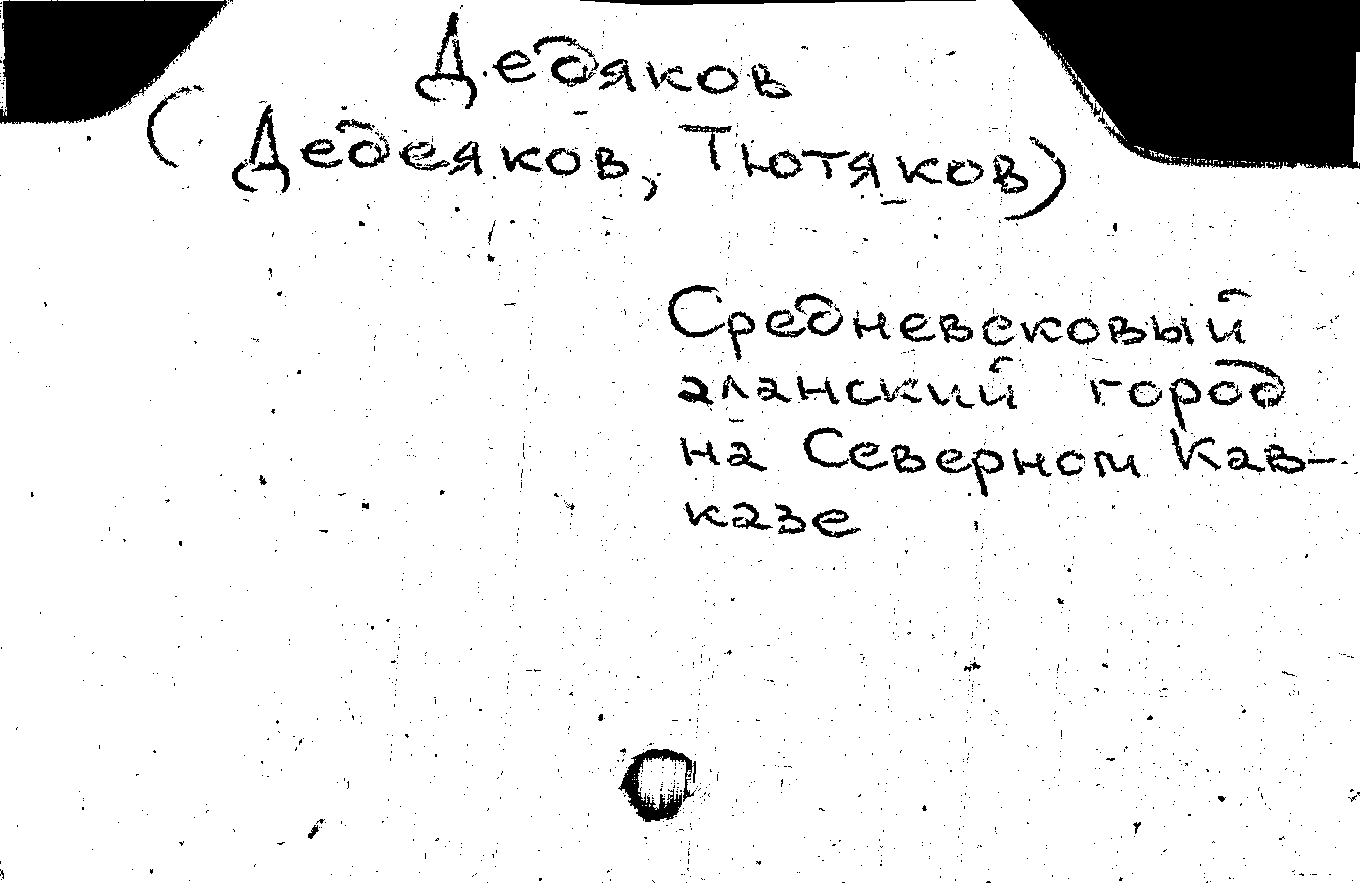 Дедяков
(Дедеяков, Тютяков)
Средневековый
аланский город
на Северном Кав-
казе